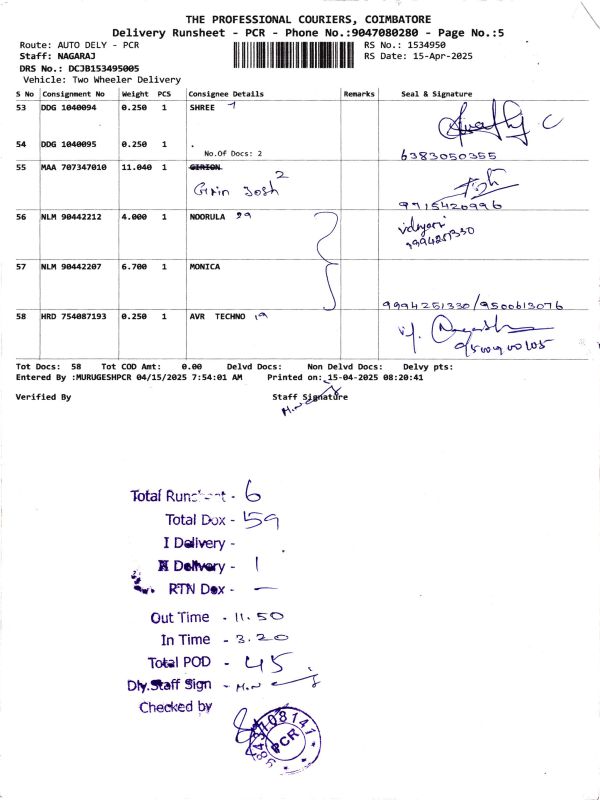 THE PROFESSIONAL COURIERS, COIMBATORE
Delivery Runsheet - PCR - Phone No.:9047080280 - Page No.:5
Route: AUTO DELY - PCR RS No.: 1534950
Staff: NAGARAJ RS Date: 15-Apr-2025
DRS No.: DCJB153495005
Vehicle: Two Wheeler Delivery
S No Consignment No Weight PCS Consignee Details Remarks Seal & Signature
53 DDG 1040094 0.250 1 SHREE
54 DDG 1040095 0.250 1 .
No.Of Docs: 2 6383050355
55 MAA 707347010 11.040 1 GIRION 2
Girin Josh
9715420996
56 NLM 90442212 4.000 1 NOORULA
9994251330
57 NLM 90442207 6.700 1 MONICA
9994251330/9500613076
58 HRD 754087193 0.250 1 AVR TECHNO
Tot Docs: 58 Tot COD Amt: 0.00 Delvd Docs: Non Delvd Docs: Delvy pts:
Entered By :MURUGESHPCR 04/15/2025 7:54:01 AM Printed on: 15-04-2025 08:20:41
Verified By Staff Signature
Total Runsheet - 6
Total Dox - 59
I Delivery -
II Delivery - 1
RTN Dox - —
Out Time - 11.50
In Time - 3.20
Total POD - 45
Dly.Staff Sign - M.N
Checked by
PCR